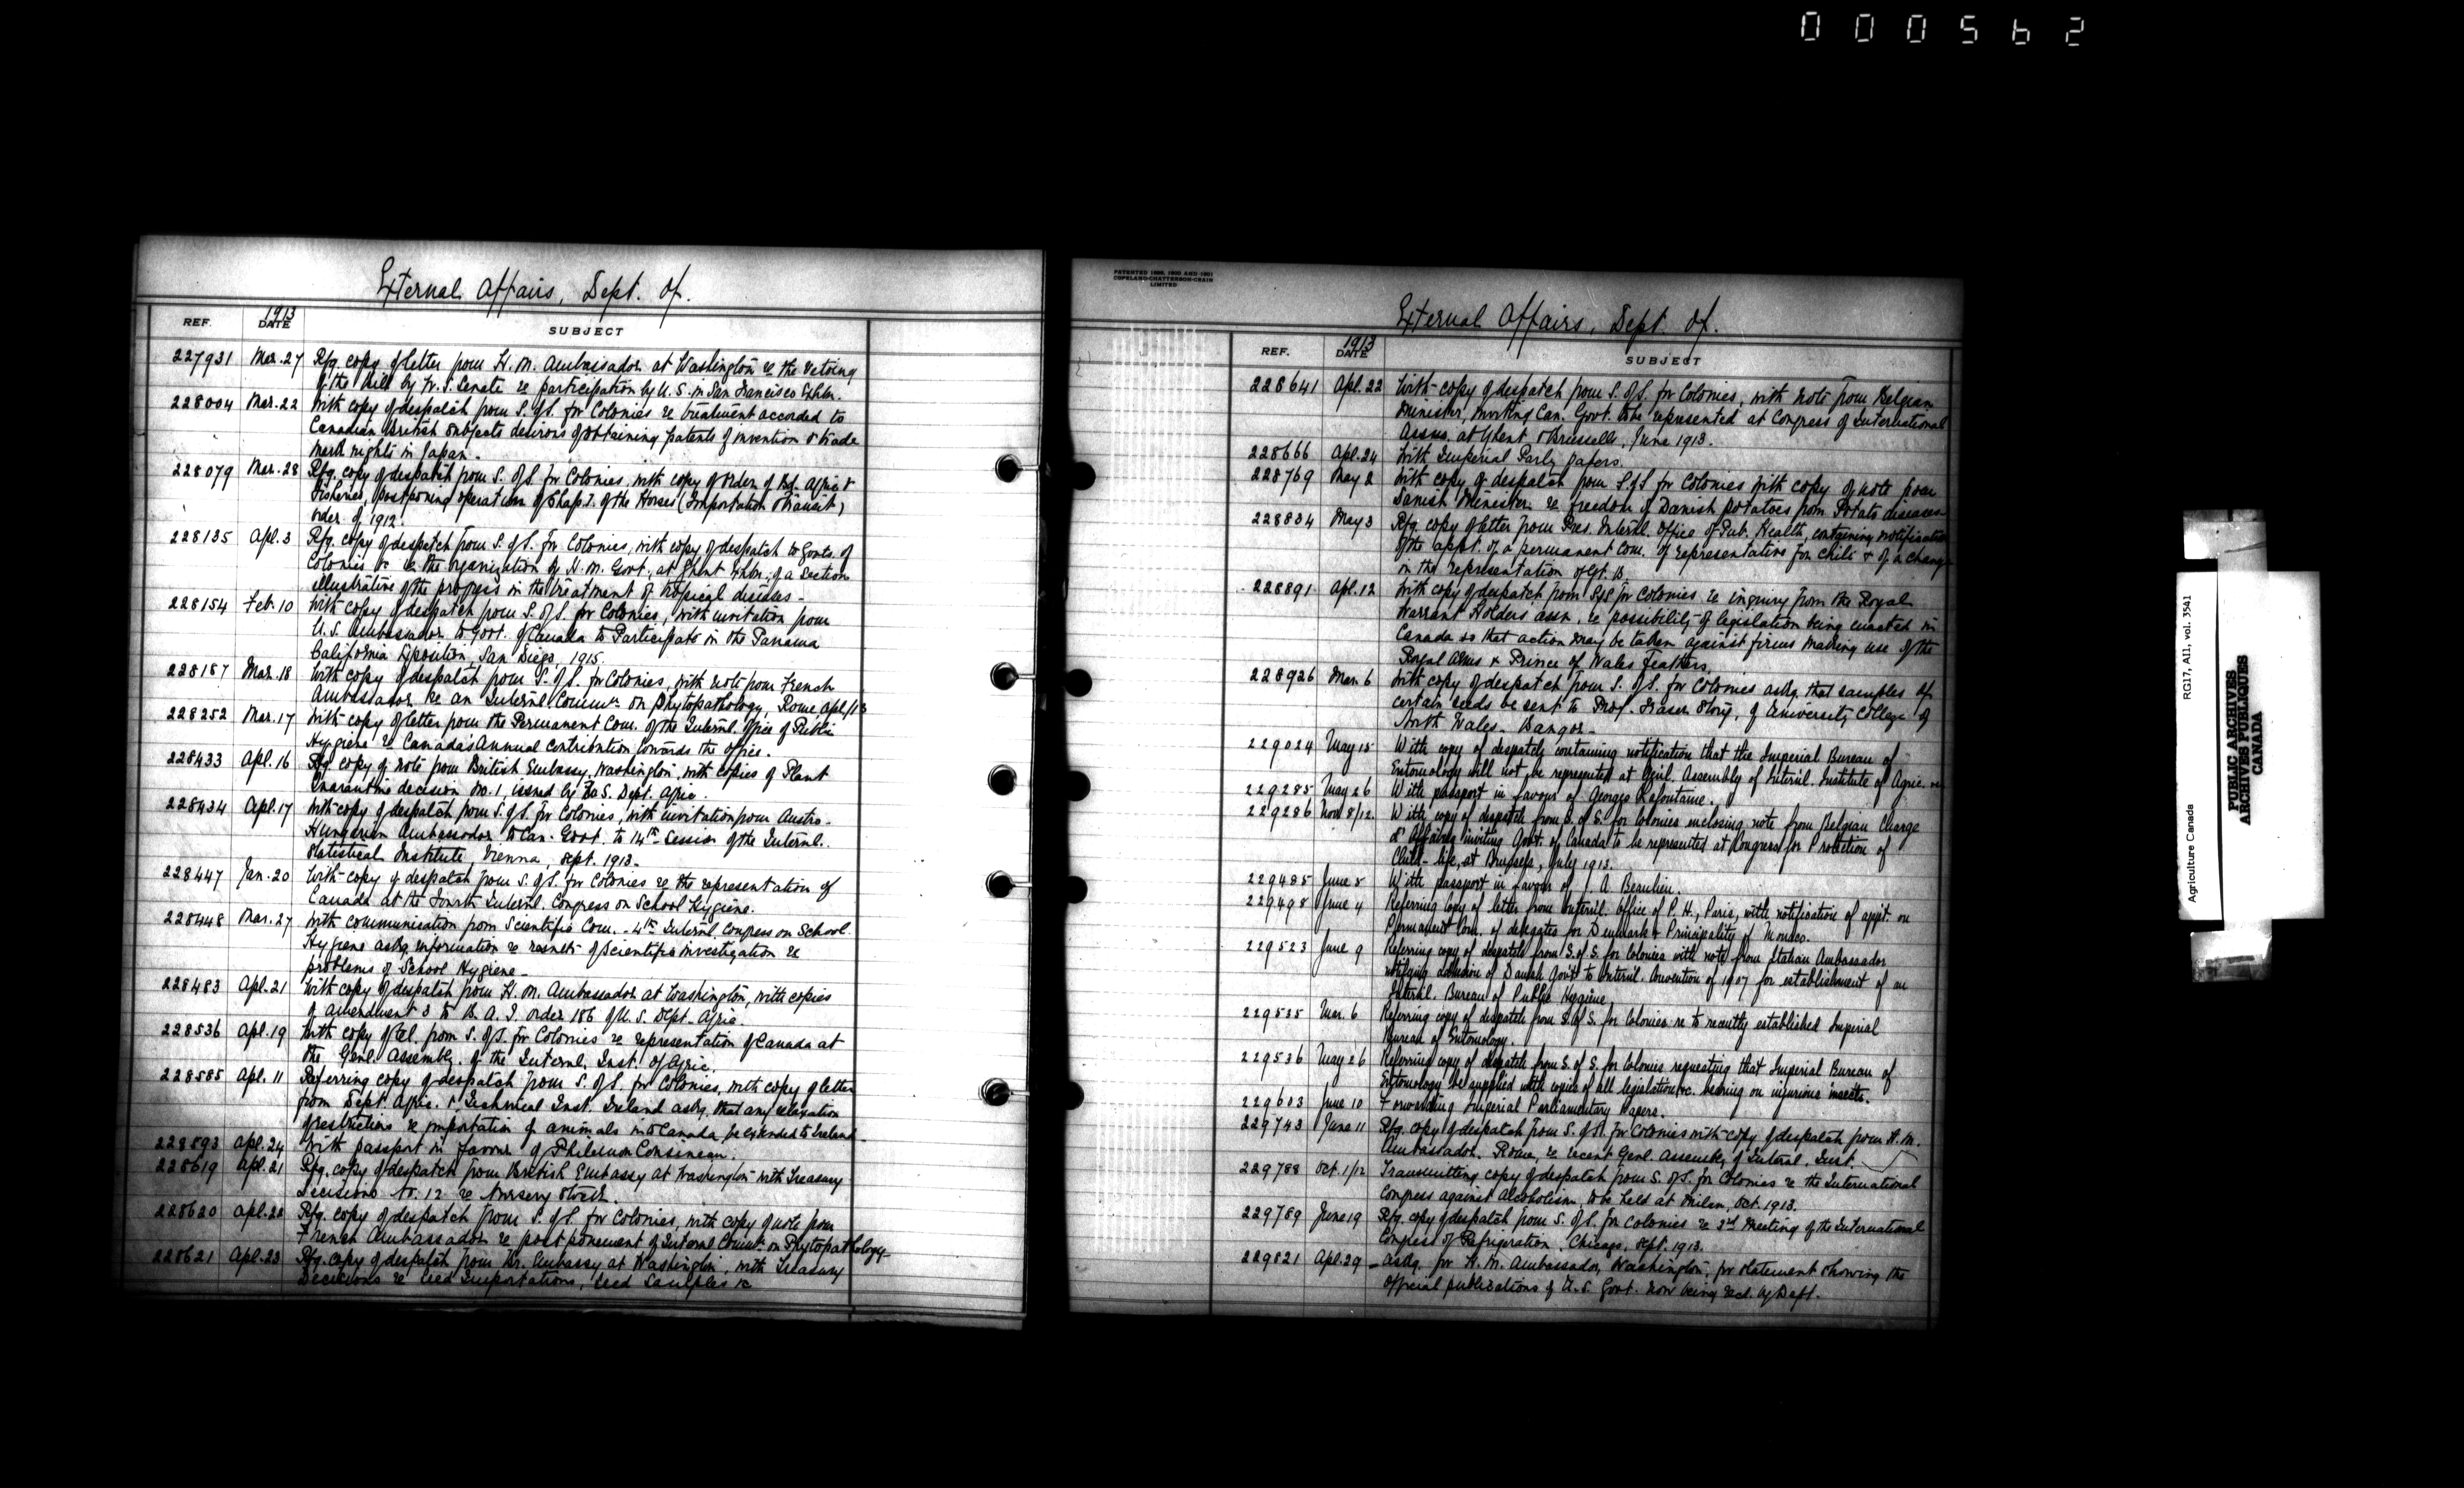 000562
External Affairs, Dept. of.
REF. 1913 DATE SUBJECT
227931 Mar. 27 Rfg. copy of letter from H. M. Ambassador at Washington re the vetoing
of the Bill by U. S. Senate re participation by U. S. in San Francisco Exhbn.
228004 Mar. 22 With copy of despatch from S. of S. for Colonies re treatment accorded to
Canadian British subjects desirous of obtaining patents of invention & trade
mark rights in Japan.
228079 Mar. 28 Rfg. copy of despatch from S. of S. for Colonies with copy of order of Bd. Agric. &
Fisheries, postponing operation of Chap. I. of the Horses (Importation & Transit)
order of 1912.
228135 Apl. 3 Rfg. copy of despatch from S. of S. for Colonies, with copy of despatch to Govts. of
Colonies &c re the organization by H. M. Govt. at Ghent Exhbn. of a section
illustrative of the progress in the treatment of tropical diseases -
228154 Feb. 10 With copy of despatch from S. of S. for Colonies, with invitation from
U. S. Ambassador to Govt. of Canada to Participate in the Panama
California Exposition, San Diego, 1915.
228187 Mar. 18 With copy of despatch from S. of S. for Colonies, with note from French
Ambassador re an Internl. Comm. on Phytopathology, Rome Apl/13
228252 Mar. 17 With copy of letter from the Permanent Com. of the Internl. Office of Public
Hygiene re Canada's Annual contribution towards the office.
228433 Apl. 16 Rfg. copy of note from British Embassy, Washington, with copies of Plant
Quarantine decision No. 1, issued by U. S. Dept. Agric.
228434 Apl. 17 With copy of despatch from S. of S. for Colonies, with invitation from Austro-
Hungarian Ambassador to Can. Govt. to 14th Session of the Internl.
Statistical Institute, Vienna, Sept. 1913.
228447 Jan. 20 With copy of despatch from S. of S. for Colonies re the representation of
Canada at the Fourth Internl. Congress on School Hygiene.
228448 Mar. 27 With communication from Scientific Com. - 4th Internl. Congress on School
Hygiene askg. information re results of Scientific investigation re
problems of School Hygiene -
228483 Apl. 21 With copy of despatch from H. M. Ambassador at Washington, with copies
of amendment 3 to B. A. I. order 186 of U. S. Dept. Agric
228536 Apl. 19 With copy of tel. from S. of S. for Colonies re representation of Canada at
the Genl. Assembly of the Internl. Inst. of Agric.
228585 Apl. 11 Referring copy of despatch from S. of S. for Colonies, with copy of letter
from Dept. Agric. & Technical Inst. Ireland askg. that any relaxation
of restrictions re importation of animals into Canada be extended to Ireland.
228593 Apl. 24 With passport in favour of Philemon Cousineau.
228619 Apl. 21 Rfg. copy of despatch from British Embassy at Washington with Treasury
Decisions No. 12 re Nursery Stock.
228620 Apl. 22 Rfg. copy of despatch from S. of S. for Colonies, with copy of note from
French Ambassador re postponement of Internl. Comm. on Phytopathology
228621 Apl. 23 Rfg. copy of despatch from Br. Embassy at Washington, with Treasury
Decisions re Seed Importations, Seed Samples &c
PATENTED 1896, 1900 AND 1901
COPELAND-CHATTERSON-CRAIN
LIMITED
External Affairs, Dept. of.
REF. 1913 DATE SUBJECT
228641 Apl. 22 With copy of despatch from S. of S. for Colonies, with note from Belgian
Minister, inviting Can. Govt. to be represented at Congress of International
Assns. at Ghent & Brussells, June 1913.
228666 Apl. 24 With Imperial Parly papers.
228769 May 2 With copy of despatch from S. of S for Colonies with copy of note from
Danish Minister re freedom of Danish potatoes from Potato diseases
228834 May 3 Rfg. copy of letter from Pres. Internl. Office of Pub. Health, containing notification
of the appt. of a permanent Com. of representative for Chili & of a change
in the representation of Gt. B.
228891 Apl. 12 With copy of despatch from S. of S. for Colonies re inquiry from the Royal
Warrant Holders' Assn. re possibility of legislation being enacted in
Canada so that action may be taken against firms making use of the
Royal Arms & Prince of Wales Feathers.
228926 Mar. 6 With copy of despatch from S. of S. for Colonies askg. that samples of
certain seeds be sent to Prof. Fraser Story, of University College of
North Wales - Bangor -
229024 May 15 With copy of despatch containing notification that the Imperial Bureau of
Entomology will not be represented at Genl. Assembly of Internl. Institute of Agric.
229285 May 26 With passport in favour of Georges Lafontaine.
229286 Nov 8/12. With copy of despatch from S. of S. for Colonies enclosing note from Belgian Charge
d'Affaires inviting Govt. of Canada to be represented at Congress for Protection of
Child-life, at Brussels, July 1913.
229485 June 5 With passport in favour of J. A. Beaulieu.
229498 June 4 Referring copy of letter from Internl. Office of P. H., Paris, with notification of appt. on
Permanent Com. of delegates for Denmark & Principality of Monaco.
229523 June 9 Referring copy of despatch from S. of S. for Colonies with note from Italian Ambassador
notifying adhesion of Danish Gov't to Internl. Convention of 1907 for establishment of an
Internl. Bureau of Public Hygiene.
229535 Mar. 6 Referring copy of despatch from S. of S. for Colonies re to recently established Imperial
Bureau of Entomology.
229536 May 26 Referring copy of despatch from S. of S. for Colonies requesting that Imperial Bureau of
Entomology be supplied with copies of all legislation, &c. bearing on injurious insects.
229603 June 10 Forwarding Imperial Parliamentary Papers.
229743 June 11 Rfg. copy of despatch from S. of S. for Colonies with copy of despatch from H. M.
Ambassador, Rome, re recent Genl. Assembly of Internl. Inst.
229788 Oct. 1/12 Transmitting copy of despatch from S. of S. for Colonies re the International
Congress against Alcoholism to be held at Milan, Oct. 1913.
229789 June 19 Rfg. copy of despatch from S. of S. for Colonies re 3rd Meeting of the International
Congress of Refrigeration, Chicago, Sept. 1913.
229821 Apl. 29 Askg. for H. M. Ambassador, Washington, for statement showing the
official publications of U. S. Govt. now being recd. by Dept.
Agriculture Canada RG17, AII, vol. 3541
PUBLIC ARCHIVES
ARCHIVES PUBLIQUES
CANADA